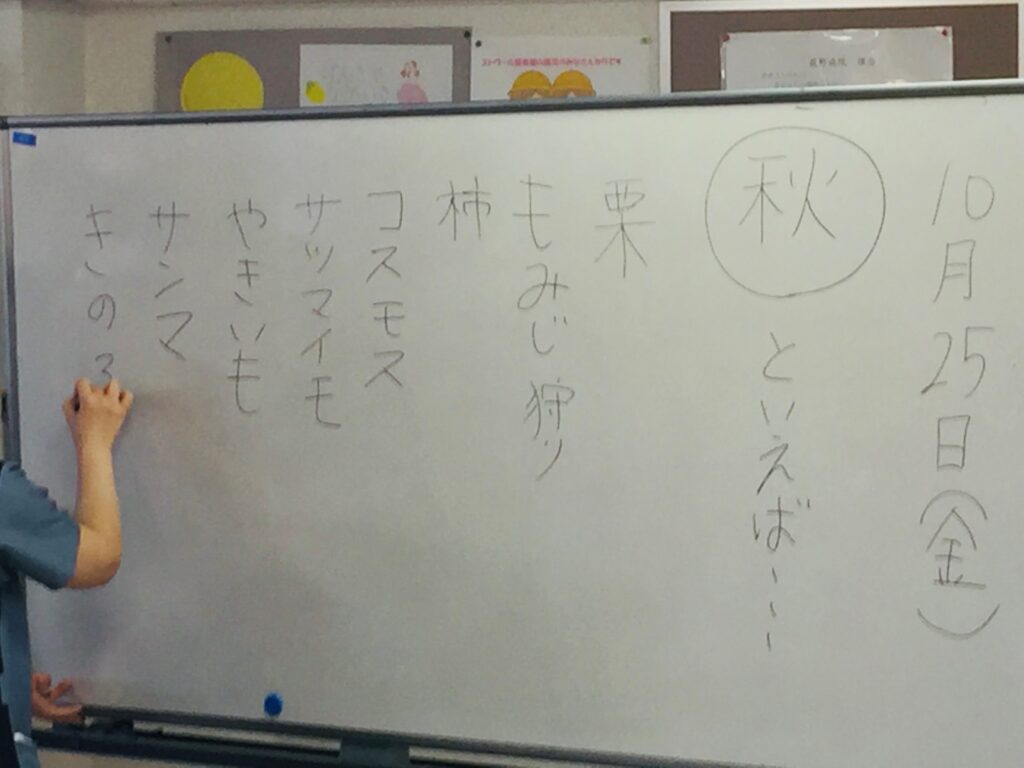 10月25日(金)
秋といえば、、、
栗
もみじ狩り
柿
コスモス
サツマイモ
やきいも
サンマ
きのこ